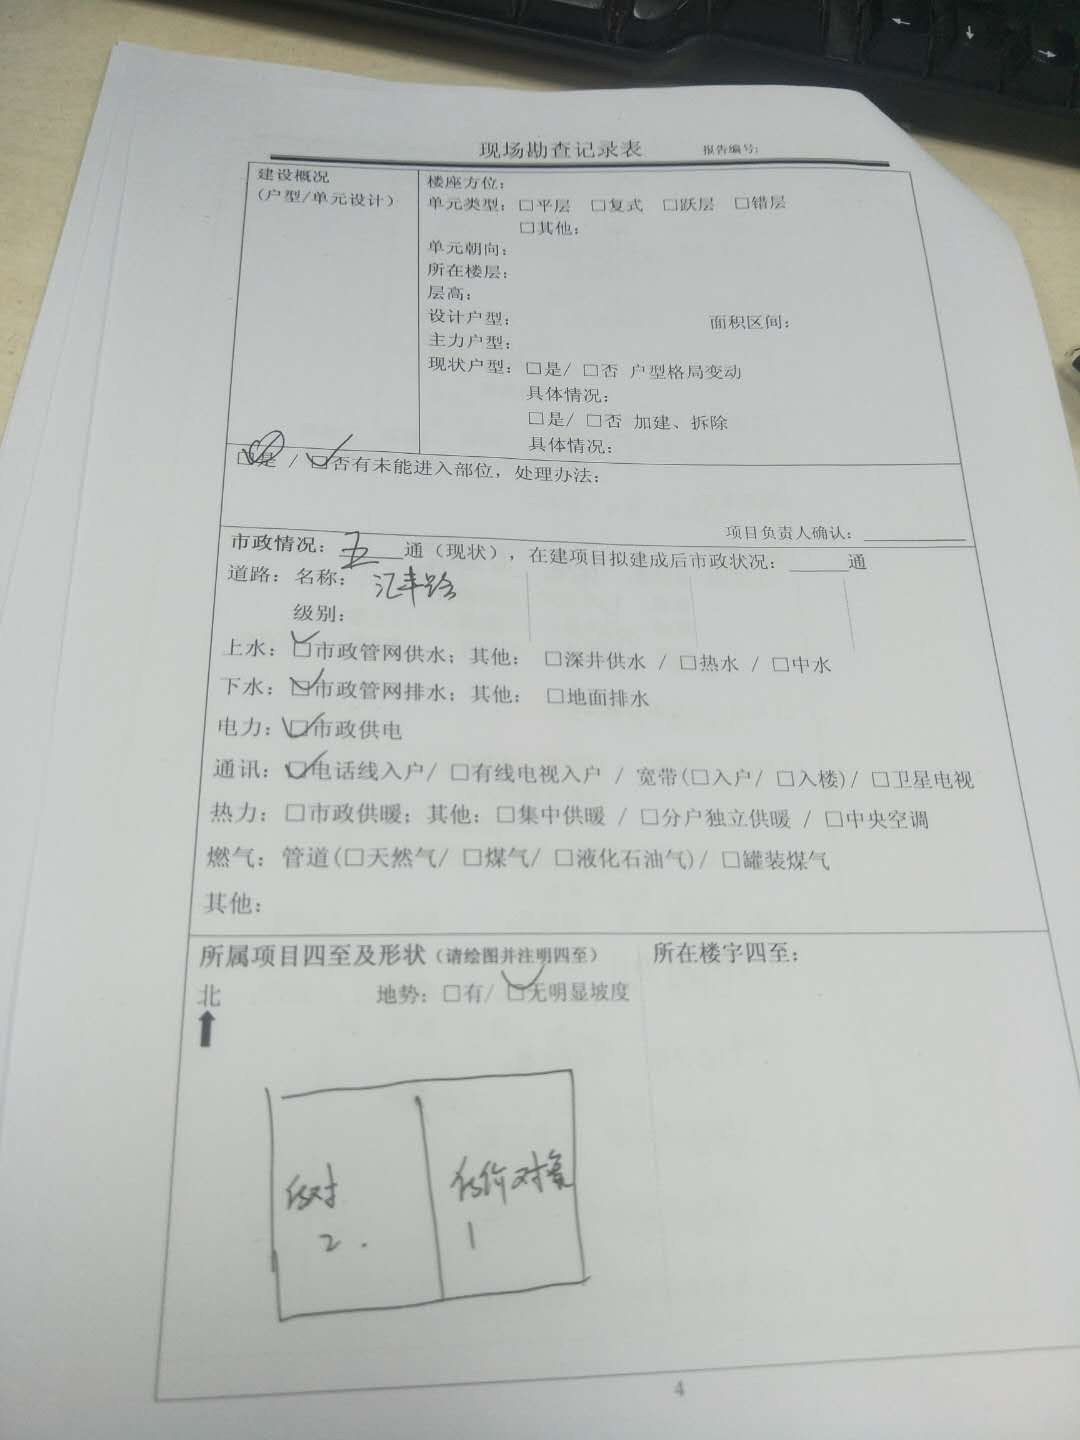 现场勘查记录表 报告编号:
建设概况
(户型/单元设计)
楼座方位:
单元类型: □平层 □复式 □跃层 □错层
□其他:
单元朝向:
所在楼层:
层高:
设计户型: 面积区间:
主力户型:
现状户型: □是/ □否 户型格局变动
具体情况:
□是/ □否 加建、拆除
具体情况:
□是 / □否有未能进入部位，处理办法:
项目负责人确认:
市政情况: 五 通（现状），在建项目拟建成后市政状况: 通
道路: 名称: 汇丰路
级别:
上水: □市政管网供水; 其他: □深井供水 / □热水 / □中水
下水: □市政管网排水; 其他: □地面排水
电力: □市政供电
通讯: □电话线入户/ □有线电视入户 / 宽带(□入户/ □入楼)/ □卫星电视
热力: □市政供暖; 其他: □集中供暖 / □分户独立供暖 / □中央空调
燃气: 管道(□天然气/ □煤气/ □液化石油气)/ □罐装煤气
其他:
所属项目四至及形状（请绘图并注明四至） 所在楼宇四至:
北 地势: □有/ □无明显坡度
估对 估价对象
2. 1
4